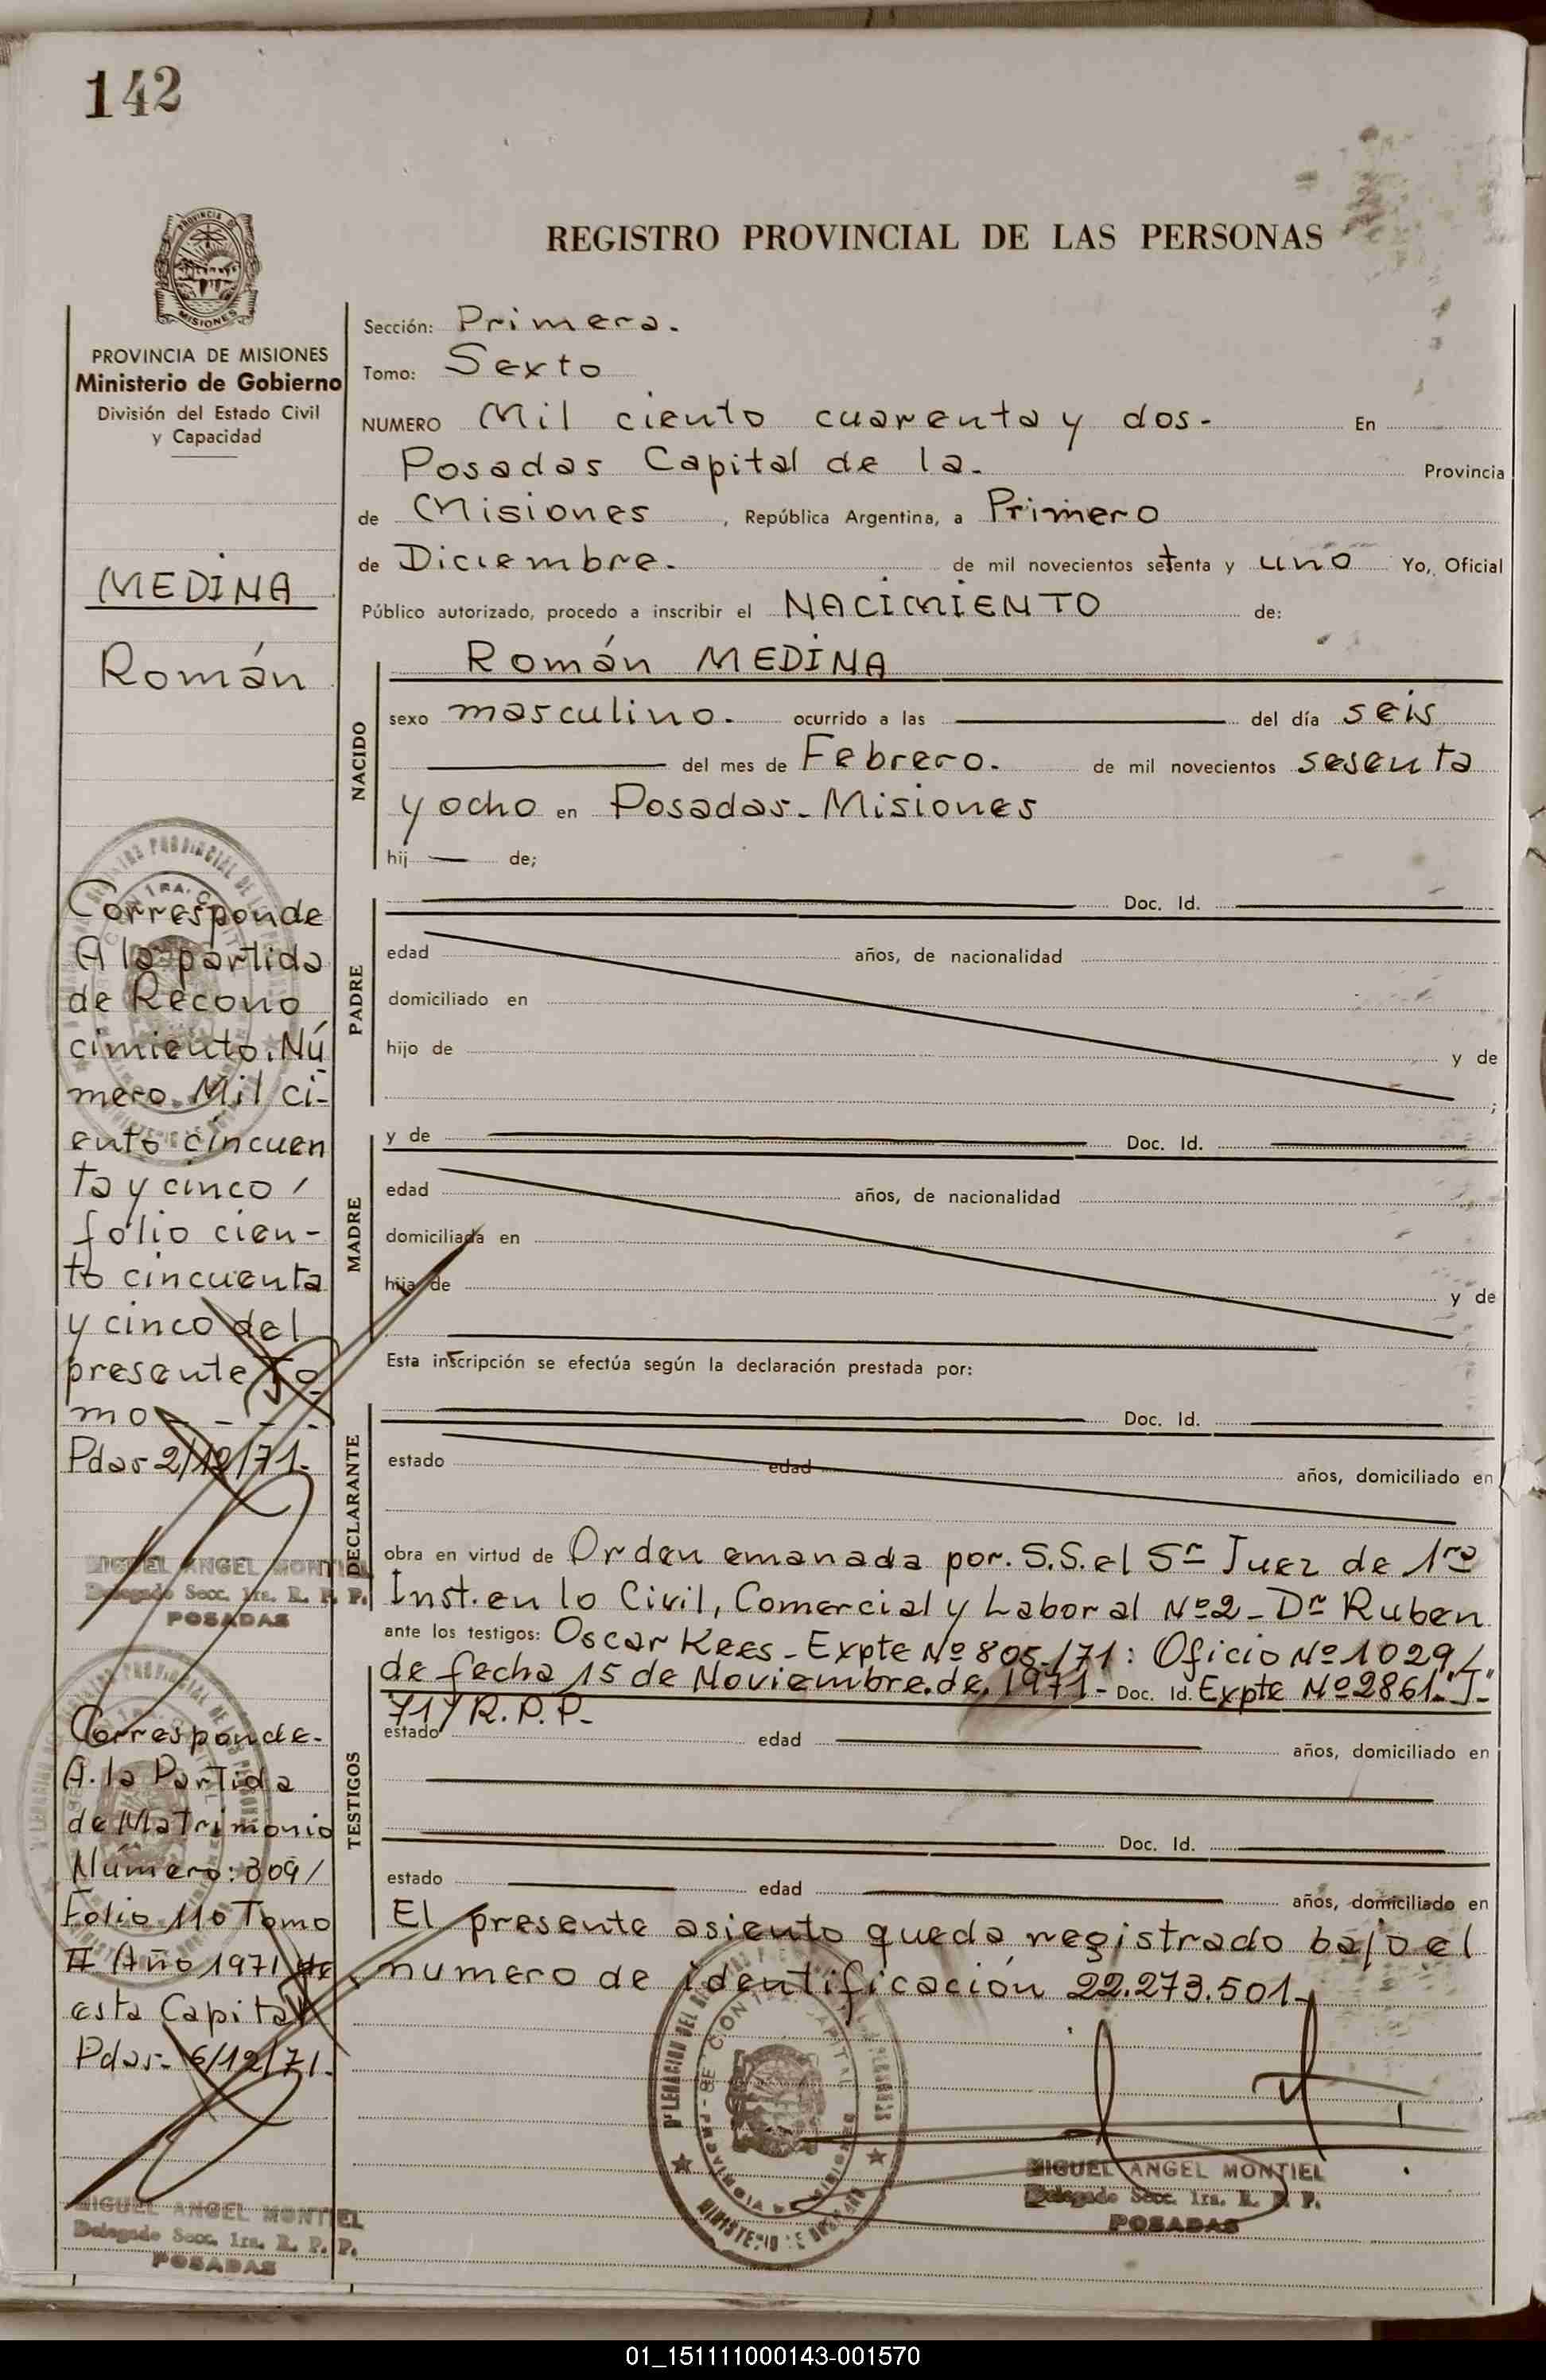 142
PROVINCIA DE MISIONES
Ministerio de Gobierno
División del Estado Civil
y Capacidad
MEDINA
Román
Corresponde
A la partida
de Recono
cimiento. Nú
mero. Mil ci-
ento cincuen
ta y cinco /
folio cien-
to cincuenta
y cinco del
presente To
mo - - -
Pdas 2/12/71.
MIGUEL ANGEL MONTIEL
Delegado Secc. 1ra. R. P. P.
POSADAS
Corresponde.
A. la Partida
de Matrimonio
Número: 309/
Folio 110 Tomo
II Año 1971 de
esta Capital
Pdas- 6/12/71.
MIGUEL ANGEL MONTIEL
Delegado Secc. 1ra. R. P. P.
POSADAS
REGISTRO PROVINCIAL DE LAS PERSONAS
Sección: Primera.
Tomo: Sexto
NUMERO Mil ciento cuarenta y dos- En
Posadas Capital de la. Provincia
de Misiones, República Argentina, a Primero
de Diciembre. de mil novecientos setenta y uno Yo, Oficial
Público autorizado, procedo a inscribir el NACIMIENTO de:
Román MEDINA
NACIDO
sexo masculino. ocurrido a las del día seis
del mes de Febrero. de mil novecientos sesenta
y ocho en Posadas-Misiones
hij de;
PADRE
Doc. Id.
edad años, de nacionalidad
domiciliado en
hijo de y de
;
MADRE
y de Doc. Id.
edad años, de nacionalidad
domiciliada en
hija de y de
Esta inscripción se efectúa según la declaración prestada por:
DECLARANTE
Doc. Id.
estado edad años, domiciliado en
obra en virtud de Orden emanada por. S.S. el Sr Juez de 1ra
Inst. en lo Civil, Comercial y Laboral Nº2- Dr Ruben
ante los testigos: Oscar Kees- Expte Nº 805-/71: Oficio Nº 1029/
de fecha 15 de Noviembre.de. 1971- Doc. Id. Expte Nº2861."J-"
71/ R.P.P.-
TESTIGOS
estado edad años, domiciliado en
Doc. Id.
estado edad años, domiciliado en
El presente asiento queda registrado bajo el
numero de identificación 22.273.501-
MIGUEL ANGEL MONTIEL
Delegado Secc. 1ra. R. P. P.
POSADAS
01_151111000143-001570